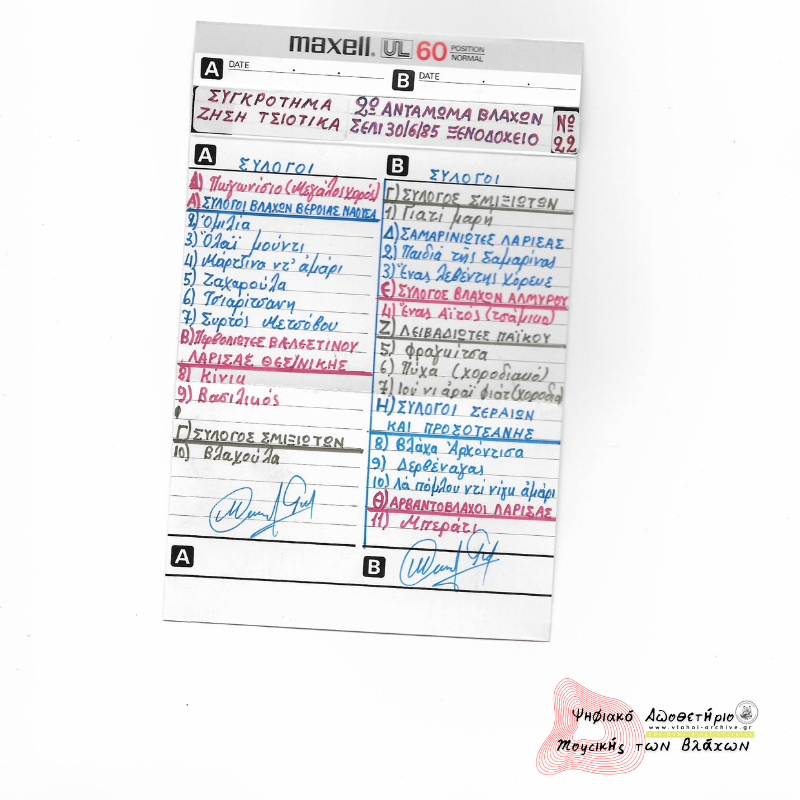 maxell UL 60 POSITION NORMAL
A DATE
B DATE
ΣΥΓΚΡΟΤΗΜΑ
ΖΗΣΗ ΤΣΙΟΤΙΚΑ
2º ΑΝΤΑΜΩΜΑ ΒΛΑΧΩΝ
ΣΕΛΙ 30/6/85 ΞΕΝΟΔΟΧΕΙΟ
Nº
22
A ΣΥΛΟΓΟΙ
1) Πωγωνίσιο (Μεγάλοιχορός)
Α) ΣΥΛΟΓΟΙ ΒΛΑΧΩΝ ΒΕΡΟΙΑΣ ΝΑΟΥΣΑ
2) Ὁμιλία
3) Ὅλαϊ μούντι
4) Μάρτζινα ντ' ἀμάρι
5) Ζαχαρούλα
6) Τσιαρίτσανη
7) Συρτός Μετσόβου
Β) Περβολιωτες ΒΕΛΕΣΤΙΝΟΥ
ΛΑΡΙΣΑΣ ΘΕΣ/ΝΙΚΗΣ
8) Κίνικ
9) Βασιλικός
Γ) ΣΥΛΟΓΟΣ ΣΜΙΞΙΩΤΩΝ
10) Βλαχούλα
A
B ΣΥΛΟΓΟΙ
Γ) ΣΥΛΟΓΟΣ ΣΜΙΞΙΩΤΩΝ
1) Γιατί μαρή
Δ) ΣΑΜΑΡΙΝΙΩΤΕΣ ΛΑΡΙΣΑΣ
2) Παιδιά τῆς Σαμαρίνας
3) Ἕνας λεβέντης χόρευε
Ε) ΣΥΛΟΓΟΣ ΒΛΑΧΩΝ ΑΛΜΥΡΟΥ
4) Ἕνας Αἰτός (τσάμικο)
Ζ) ΛΕΙΒΑΔΙΩΤΕΣ ΠΑΪΚΟΥ
5) Φραγκίτσα
6) Πύχα (χορωδιακό)
7) Ἰού νι ἀραϊ φιάτ (χοροδια
Η) ΣΥΛΟΓΟΙ ΣΕΡΑΙΩΝ
ΚΑΙ ΠΡΟΣΟΤΣΑΝΗΣ
8) Βλάχα Ἀρχόντισα
9) Δερβέναγας
10) Λά πόμλου ντί νίγκ ἀμάρι
Θ) ΑΡΒΑΝΤΟΒΛΑΧΟΙ ΛΑΡΙΣΑΣ
11) Μπεράτι
B
Ψηφιακό Αποθετήριο
www.vlahoi-archive.gr
Μουσικής των Βλάχων